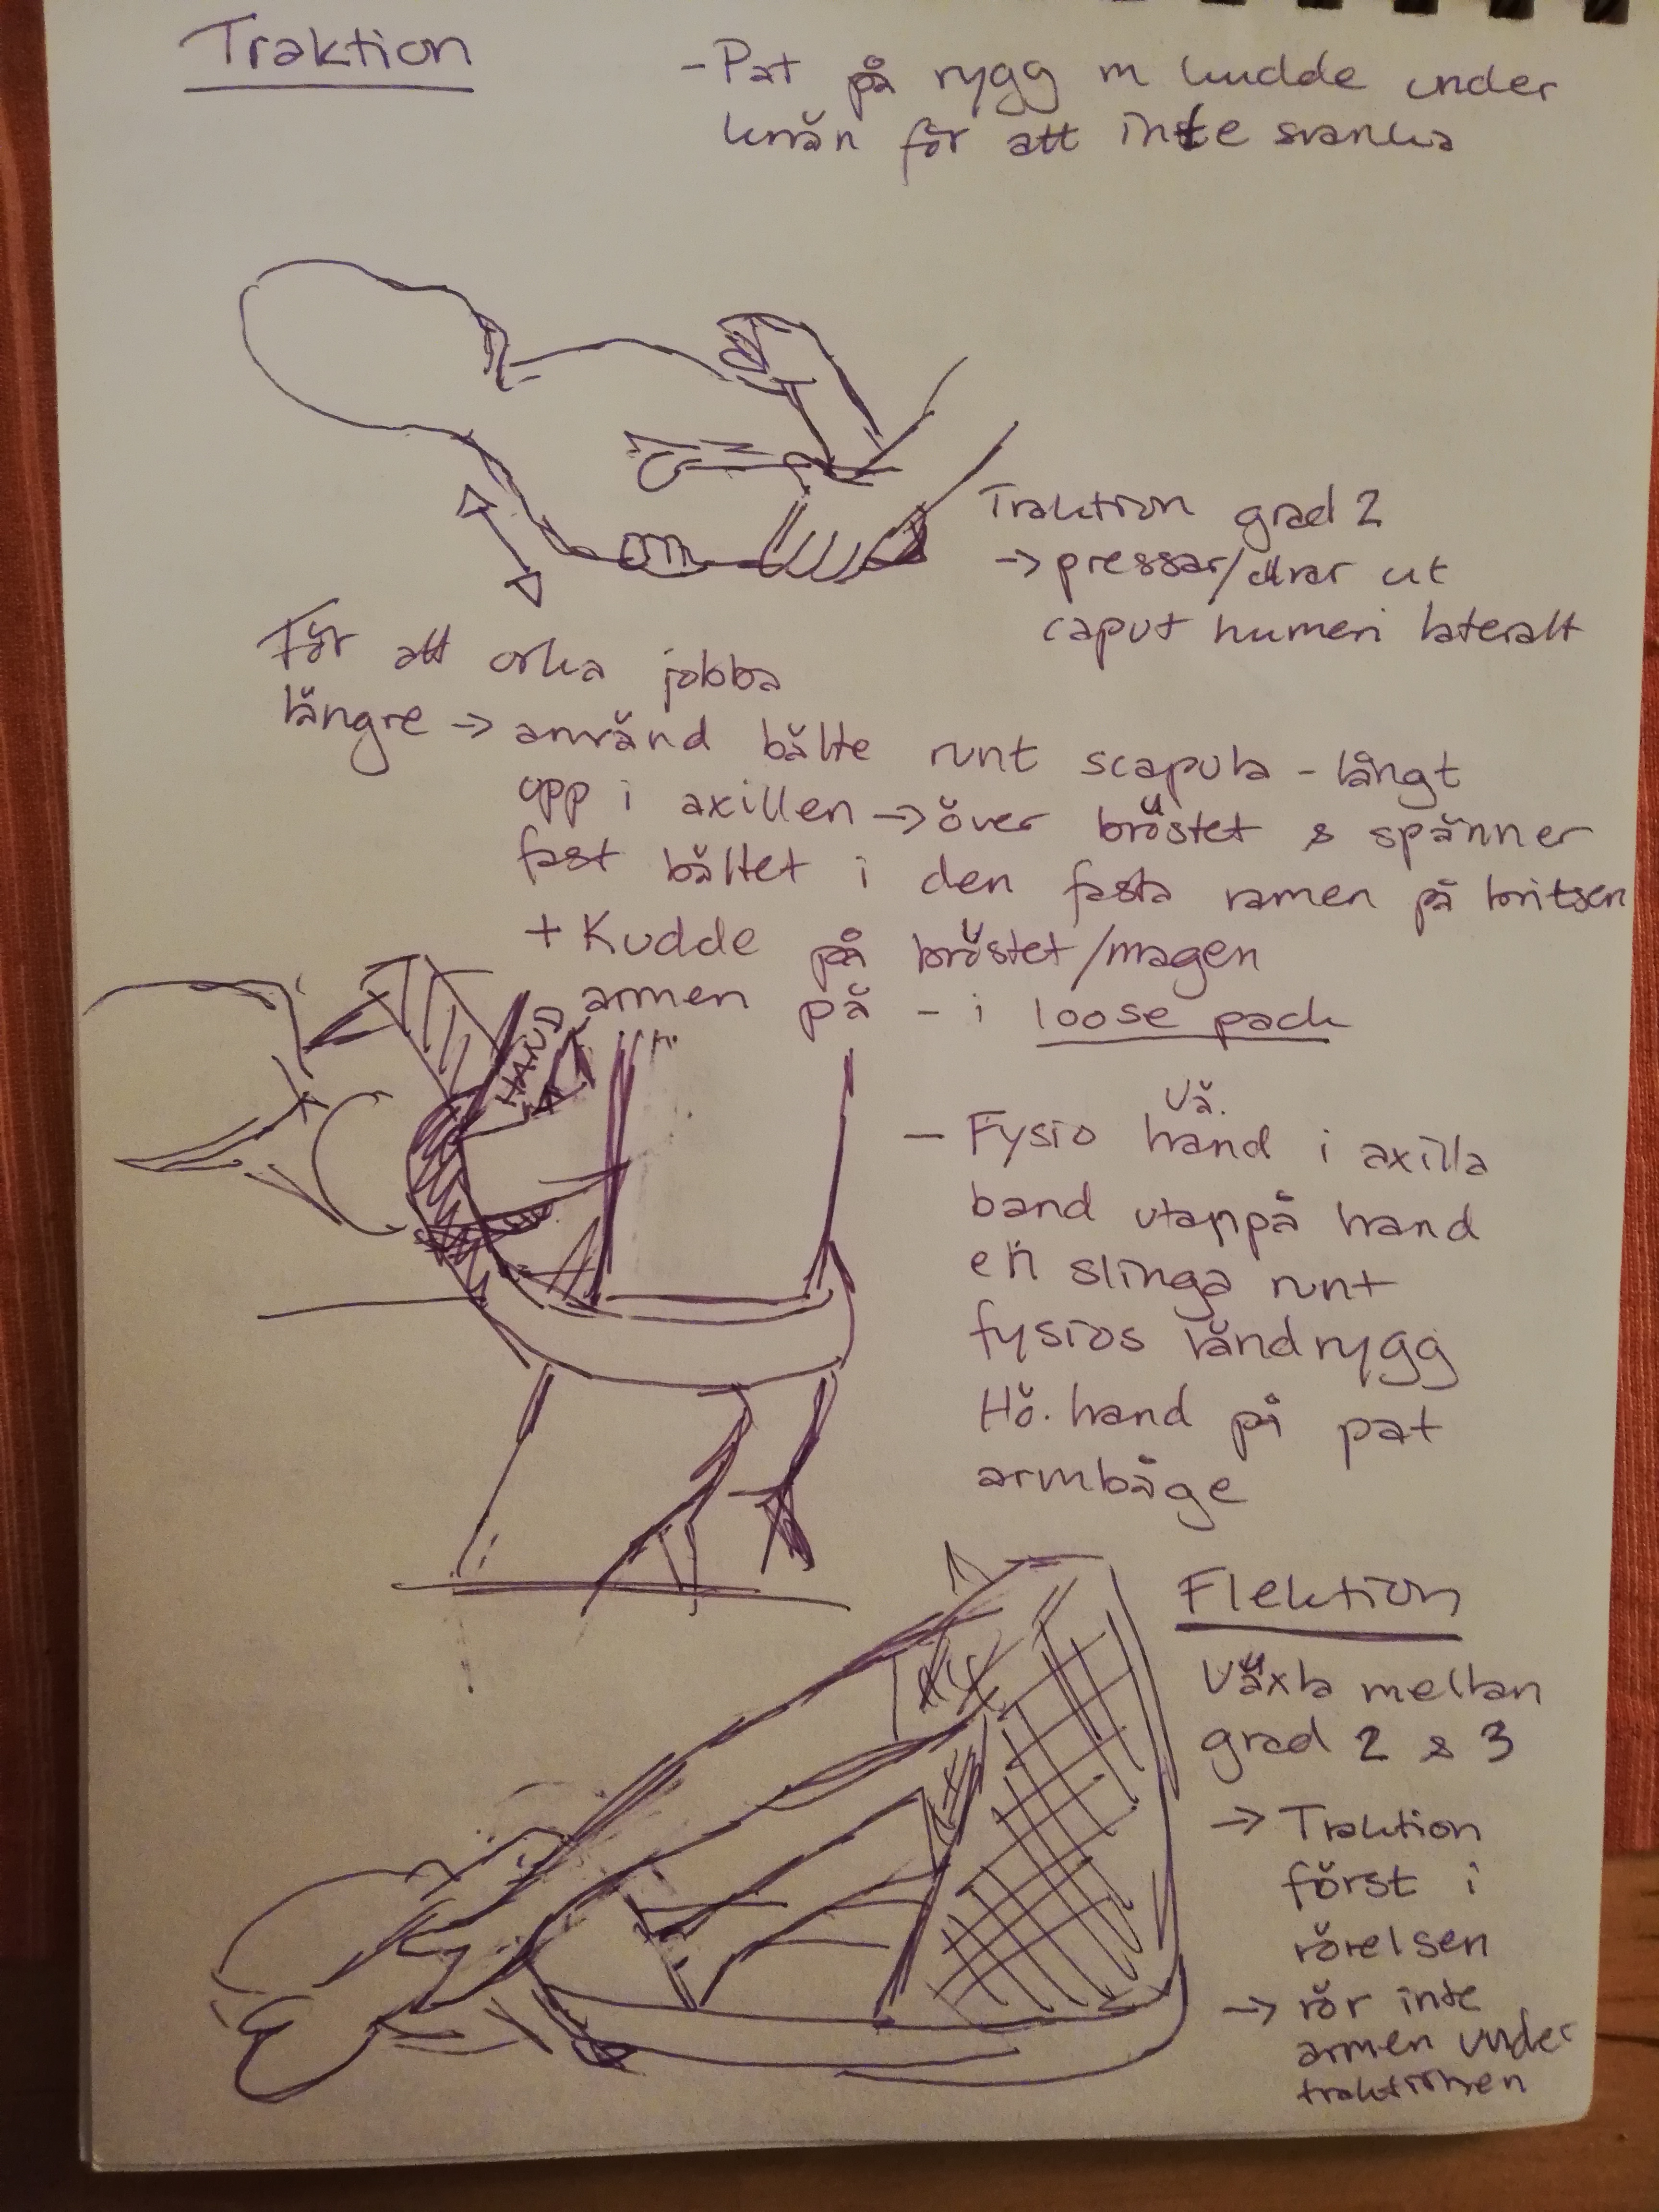 Traktion
- Pat på rygg m kudde under
knän för att inte svanka
Traktion grad 2
-> pressar/drar ut
caput humeri lateralt
För att orka jobba
längre -> använd bälte runt scapula - långt
upp i axillen -> över bröstet & spänner
fast bältet i den fasta ramen på britsen
+ Kudde på bröstet/magen
armen på - i loose pack
HAND
Vä.
- Fysio hand i axilla
band utanpå hand
en slinga runt
fysios ländrygg
Hö. hand på pat
armbåge
Flektion
Växla mellan
grad 2 & 3
-> Traktion
först i
rörelsen
-> rör inte
armen under
traktionen